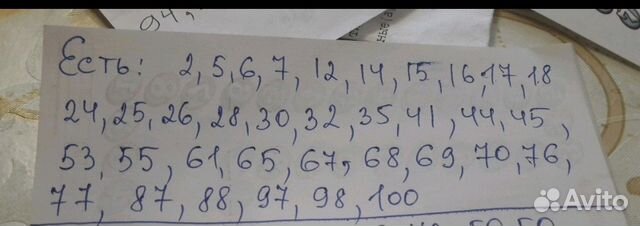 94,
Есть: 2, 5, 6, 7, 12, 14, 15, 16, 17, 18
24, 25, 26, 28, 30, 32, 35, 41, 44, 45,
53, 55, 61, 65, 67, 68, 69, 70, 76,
77, 87, 88, 97, 98, 100
Avito